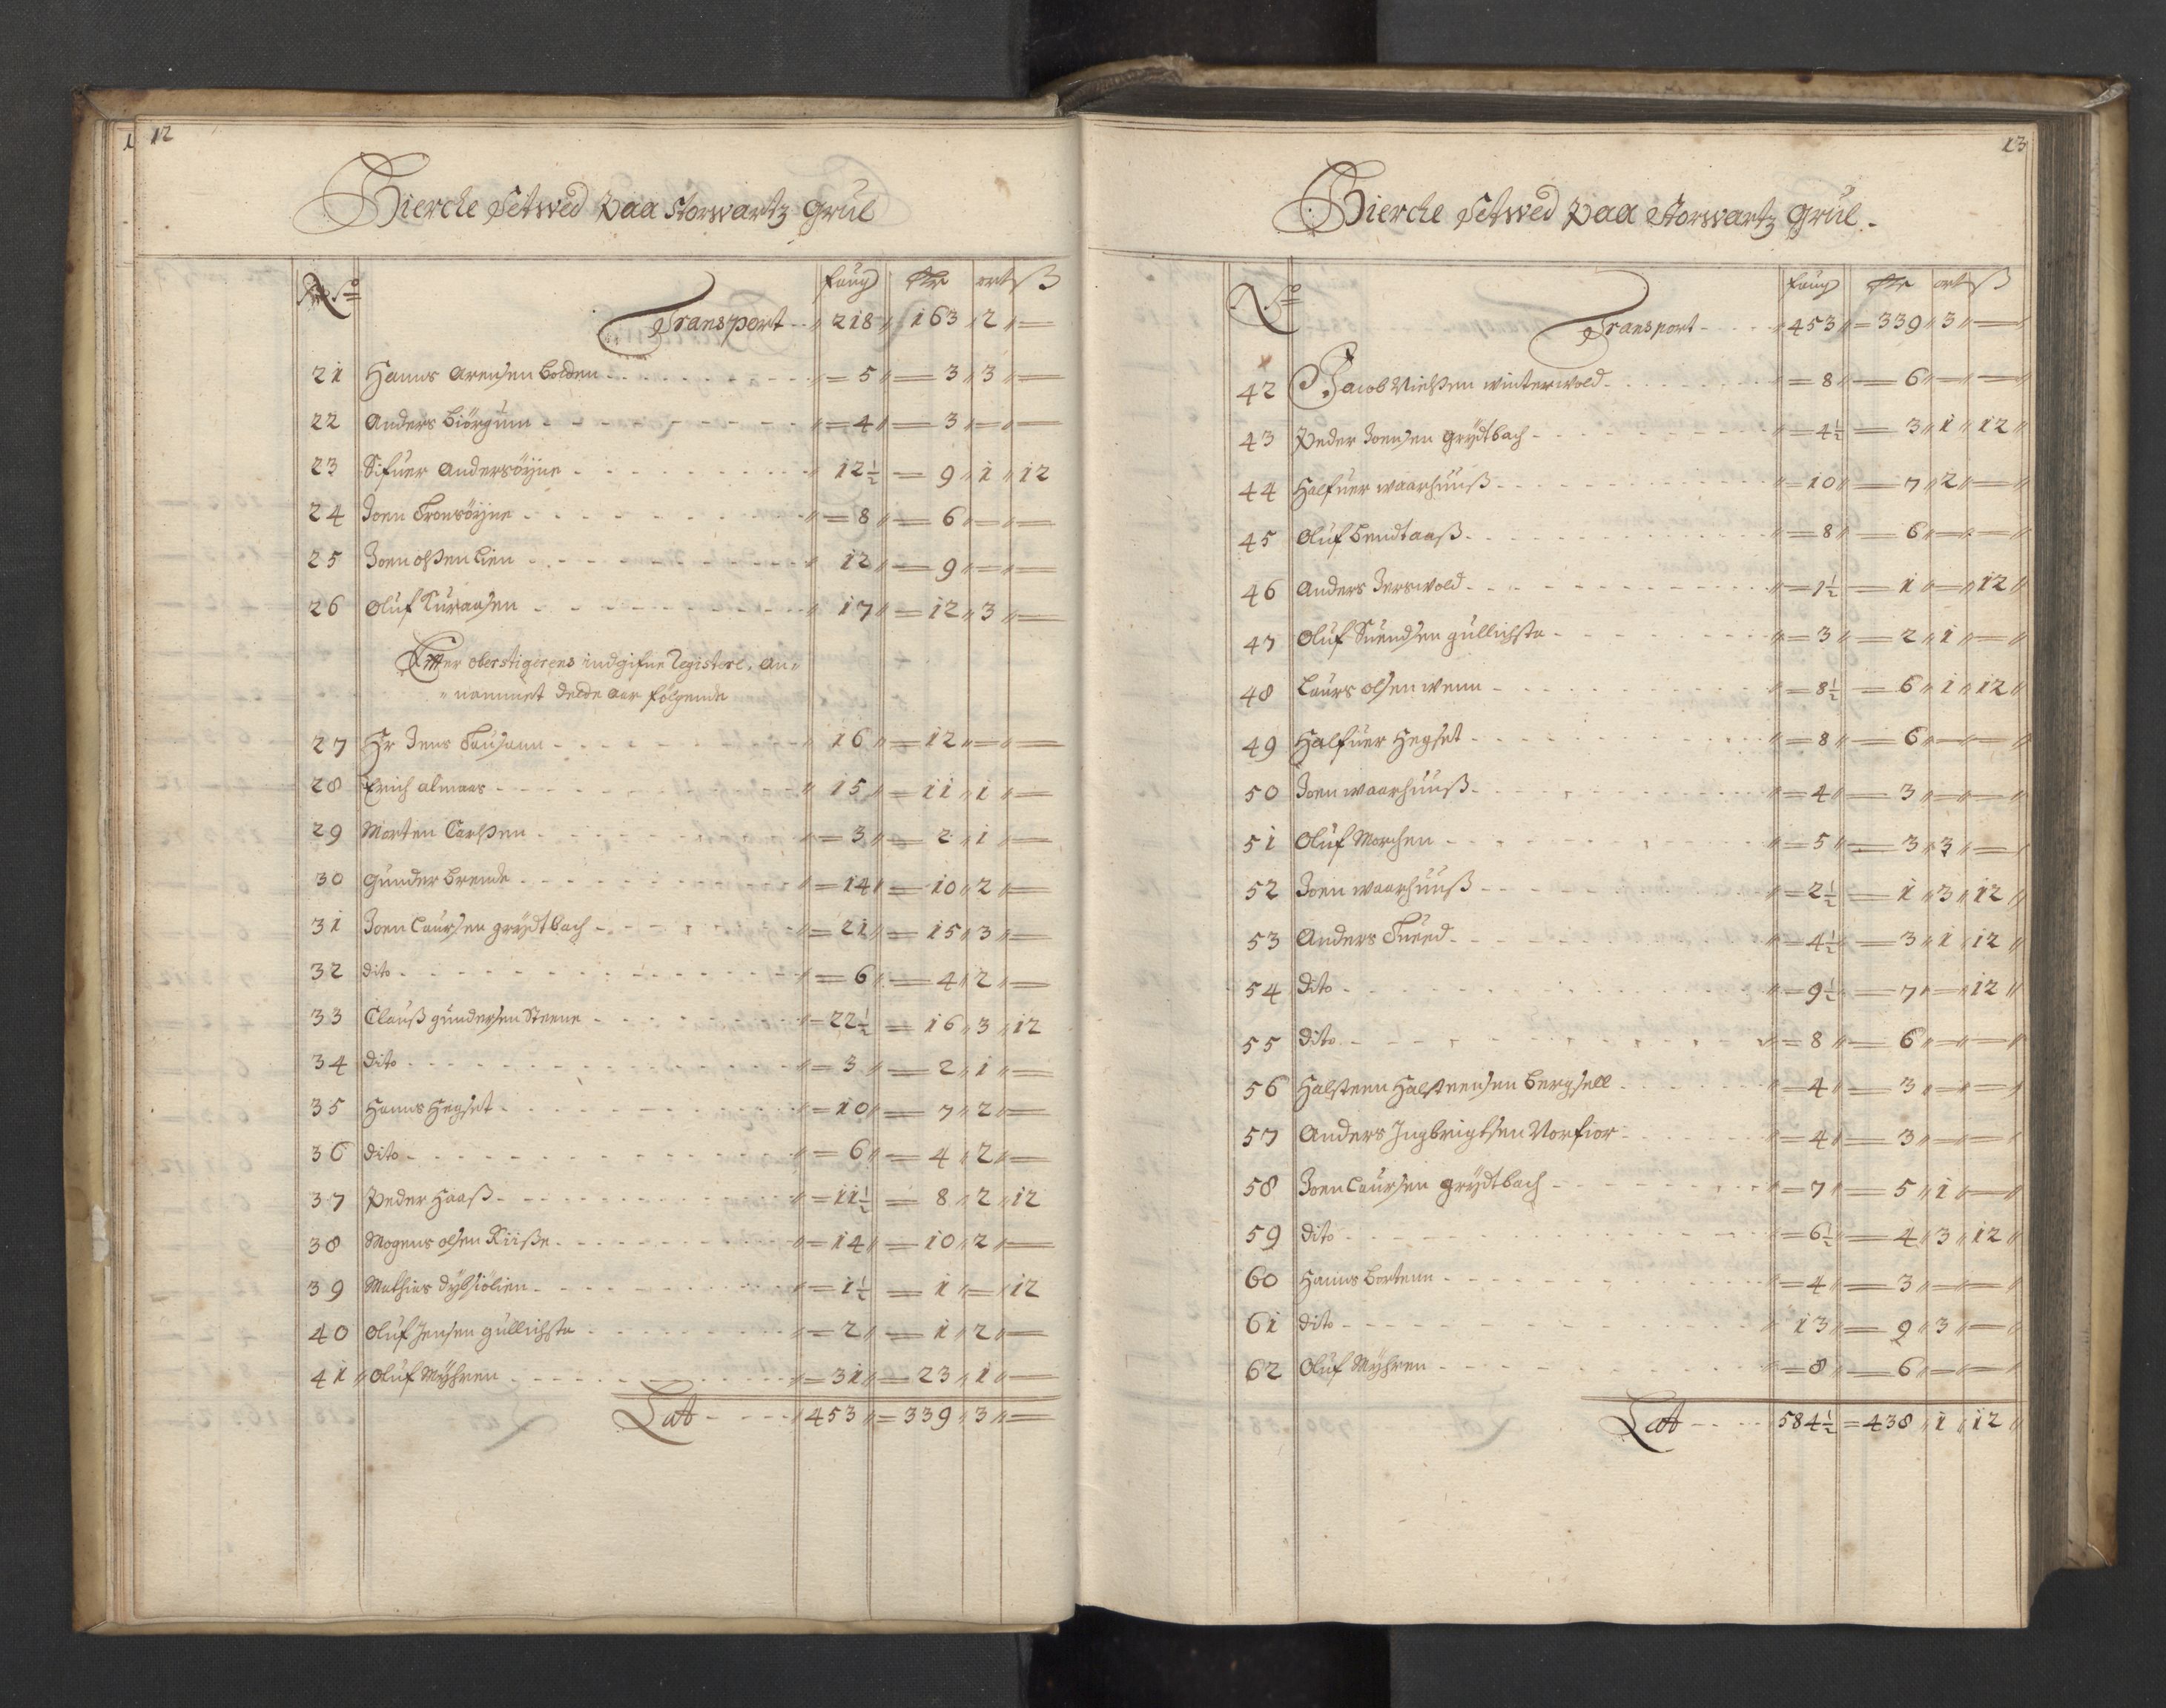 12
Bierche Setwed paa Storwartz Grul
No faug rdr ort ß
Transport - " 218 " 163 " 2 " —
21 Hanns Arensen Bolden - " = 5 " = 3 " 3 " —
22 Anders Biörgum - " = 4 " = 3 " — " —
23 Sifuer Andersöyne - " 12½ = 9 " 1 " 12
24 Joen Tronsöyne - " = 8 " = 6 " — " —
25 Joen olßen Lien - " 12 " = 9 " — " —
26 Oluf Suraasen - " 17 " = 12 " 3 " —
Effter oberstigerens indgifne Register, An-
" nammet dette Aar følgende
27 Hr Jens Tausann - " 16 " = 12 " — " —
28 Erich almaas - " 15 " = 11 " 1 " —
29 Morten Carlßen - " = 3 " = 2 " 1 " —
30 Gunder Brende - " = 14 " = 10 " 2 " —
31 Joen Laursen grydtbach - " = 21 " = 15 " 3 " —
32 dito - " = 6 " = 4 " 2 " —
33 Clauß gundersen Steene - " = 22½ = 16 " 3 " 12
34 dito - " = 3 " = 2 " 1 " —
35 Hanns Hegset - " = 10 " = 7 " 2 " —
36 dito - " = 6 " = 4 " 2 " —
37 Peder Haaß - " = 11½ = 8 " 2 " 12
38 Mogens olsen Riiße - " = 14 " = 10 " 2 " —
39 Mathias dybsiölien - " = 1½ = 1 " = " 12
40 Oluf Jensen gullichsta - " = 2 " = 1 " 2 " —
41 " Oluf Myhren - " = 31 " = 23 " 1 " —
Lat - " 453 " = 339 " 3 " —
13
Bierche Setwed paa Storwartz Grul.
No faug rdr ort ß
Transport - " 453 " = 339 " 3 " —
42 Jacob Nielßen winterwold - " = 8 " = 6 " — " —
43 Peder Joensen grydtbach - " = 4½ = 3 " 1 " 12 "
44 Halfuer waarhuuß - " = 10 " = 7 " 2 " — "
45 Oluf bendtaaß - " = 8 " = 6 " — " — "
46 Anders Jerswold - " = 1½ = 1 " — " 12 "
47 Oluf Suendsen gullichsta - " = 3 " = 2 " 1 " — "
48 Laurs olsen wenn - " = 8½ = 6 " 1 " 12 "
49 Halfuer Hegset - " = 8 " = 6 " — " — "
50 Joen waarhuuß - " = 4 " = 3 " — " — "
51 Oluf Morchen - " = 5 " = 3 " 3 " — "
52 Joen waarhuuß - " = 2½ = 1 " 3 " 12 "
53 Anders Tueed - " = 4½ = 3 " 1 " 12 "
54 dito - " = 9½ = 7 " — " 12 "
55 dito - " = 8 " = 6 " — " — "
56 Halsteen Halsteensen Bergsell - " = 4 " = 3 " — " — "
57 Anders Ingbrigtsen Norfior - " = 4 " = 3 " — " — "
58 Joen Laursen grydtbach - " = 7 " = 5 " 1 " — "
59 dito - " = 6½ = 4 " 3 " 12 "
60 Hanns Bortenn - " = 4 " = 3 " — " — "
61 dito - " 13 " = 9 " 3 " — "
62 Oluf Myhren - " = 8 " = 6 " — " — "
Lat - 584½ = 438 " 1 " 12 "